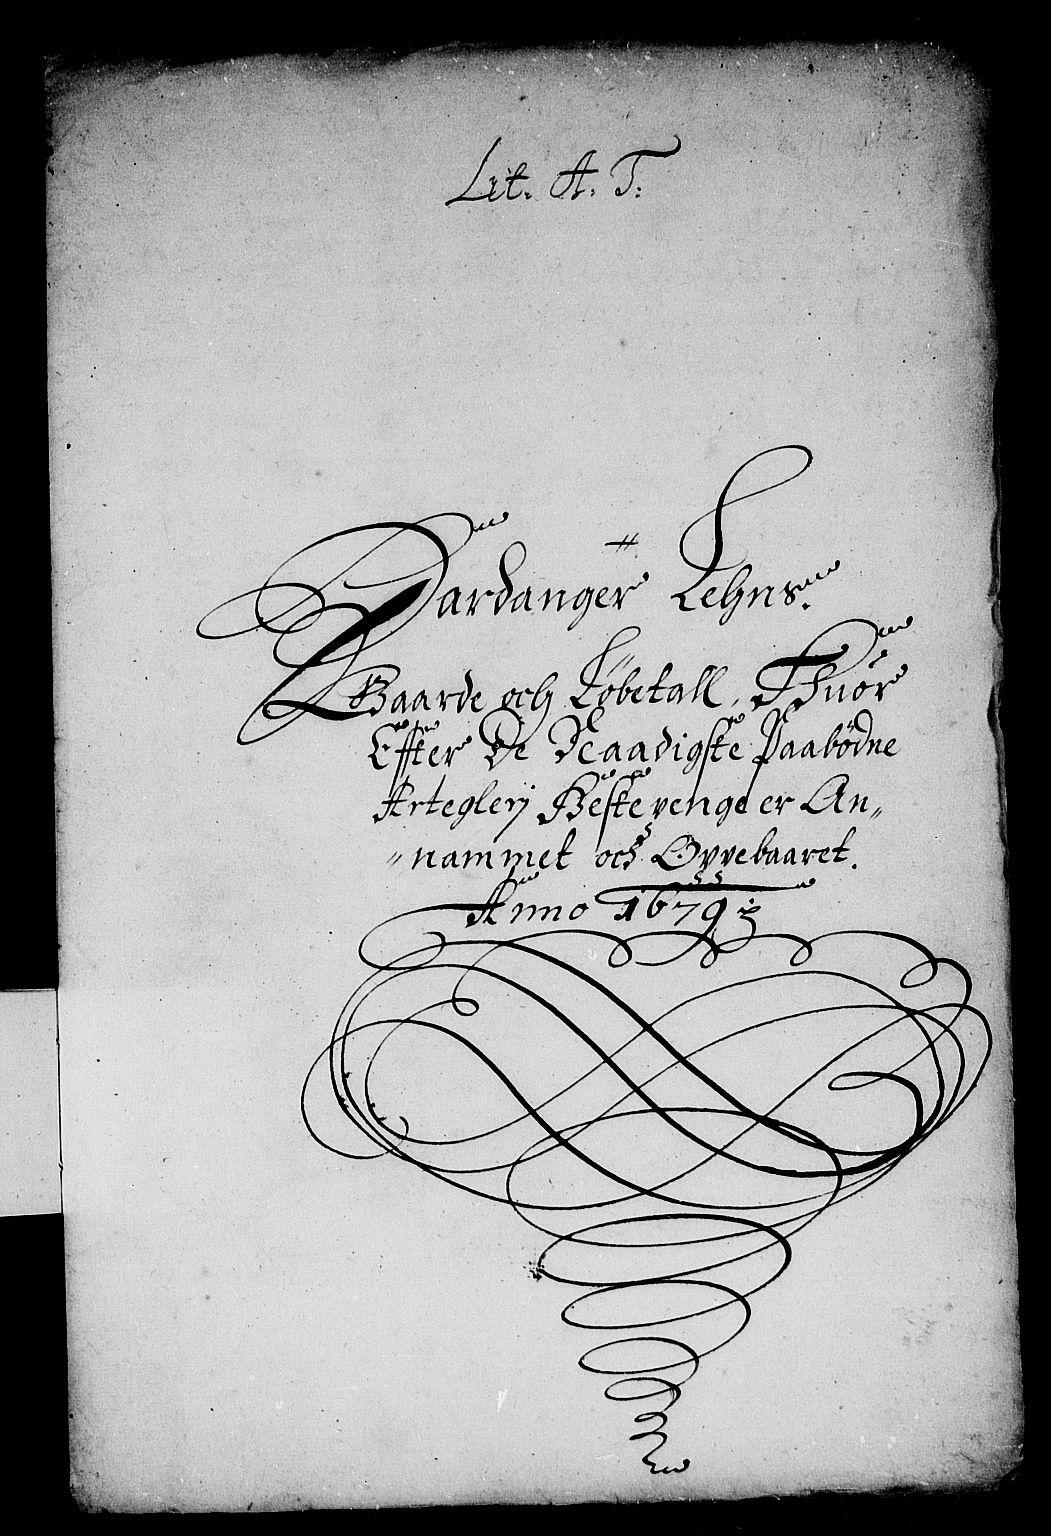 Lit. A. T:
Hardanger Lehns.
Gaarde och Løbetall, Huor
Effter De Naadigste Paabødne
Arteglerj Hestepenge er An„
„nammet och Oppebaaret.
Anno 1679